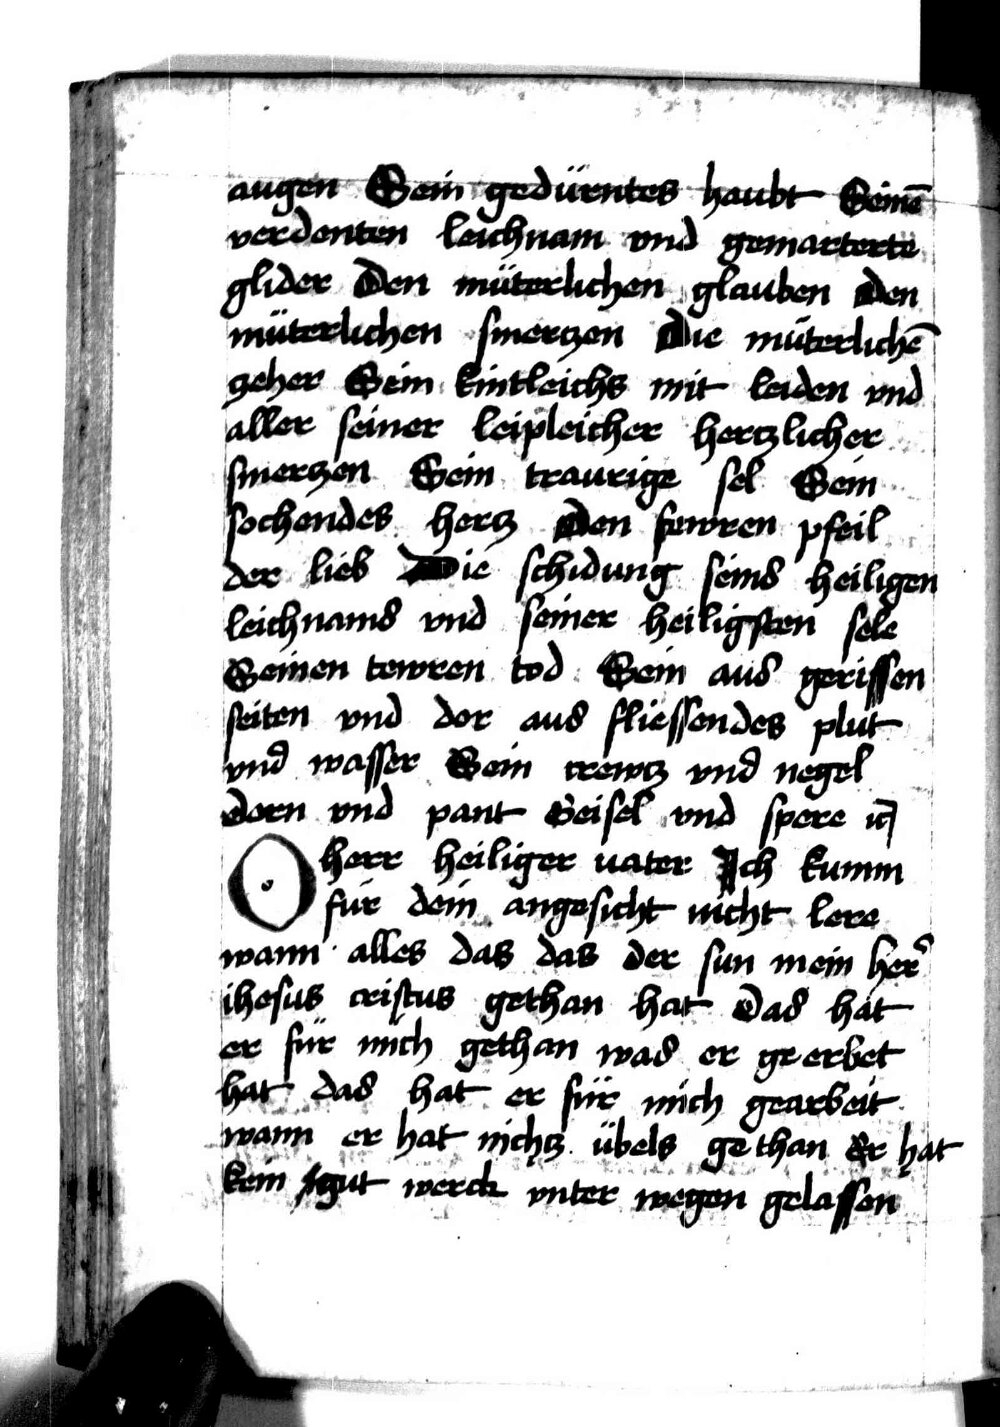 augen Sein gedürntes haubt Seinē
verdenten leichnam vnd gemarterte
glider Den müterlichen glauben Den
müterlichen smerczen Die müterlichē
zeher Sein kintleichs mit leiden vnd
aller seiner leipleicher herczlicher
smerczen Sein traurige sel Sein
sochendes hercz Den fewren pfeil
der lieb Die schidung seins heiligen
leichnams vnd seiner heiligsten sele
Seinen tewren tod Sein aus gerissen
seiten vnd dor aus fliessendes plut
vnd wasser Sein crewcz vnd negel
Dorn vnd pant Geisel vnd spere
O herr heiliger uater Ich kumm
für dein angesicht nicht lere
wann alles das das der sun mein her
ihesus cristus gethan hat Das hat
er für mich gethan was er geerbet
hat das hat er für mich gearbeit
wann er hat nichcz übels gethan Er hat
kein gut werck vnter wegen gelassen